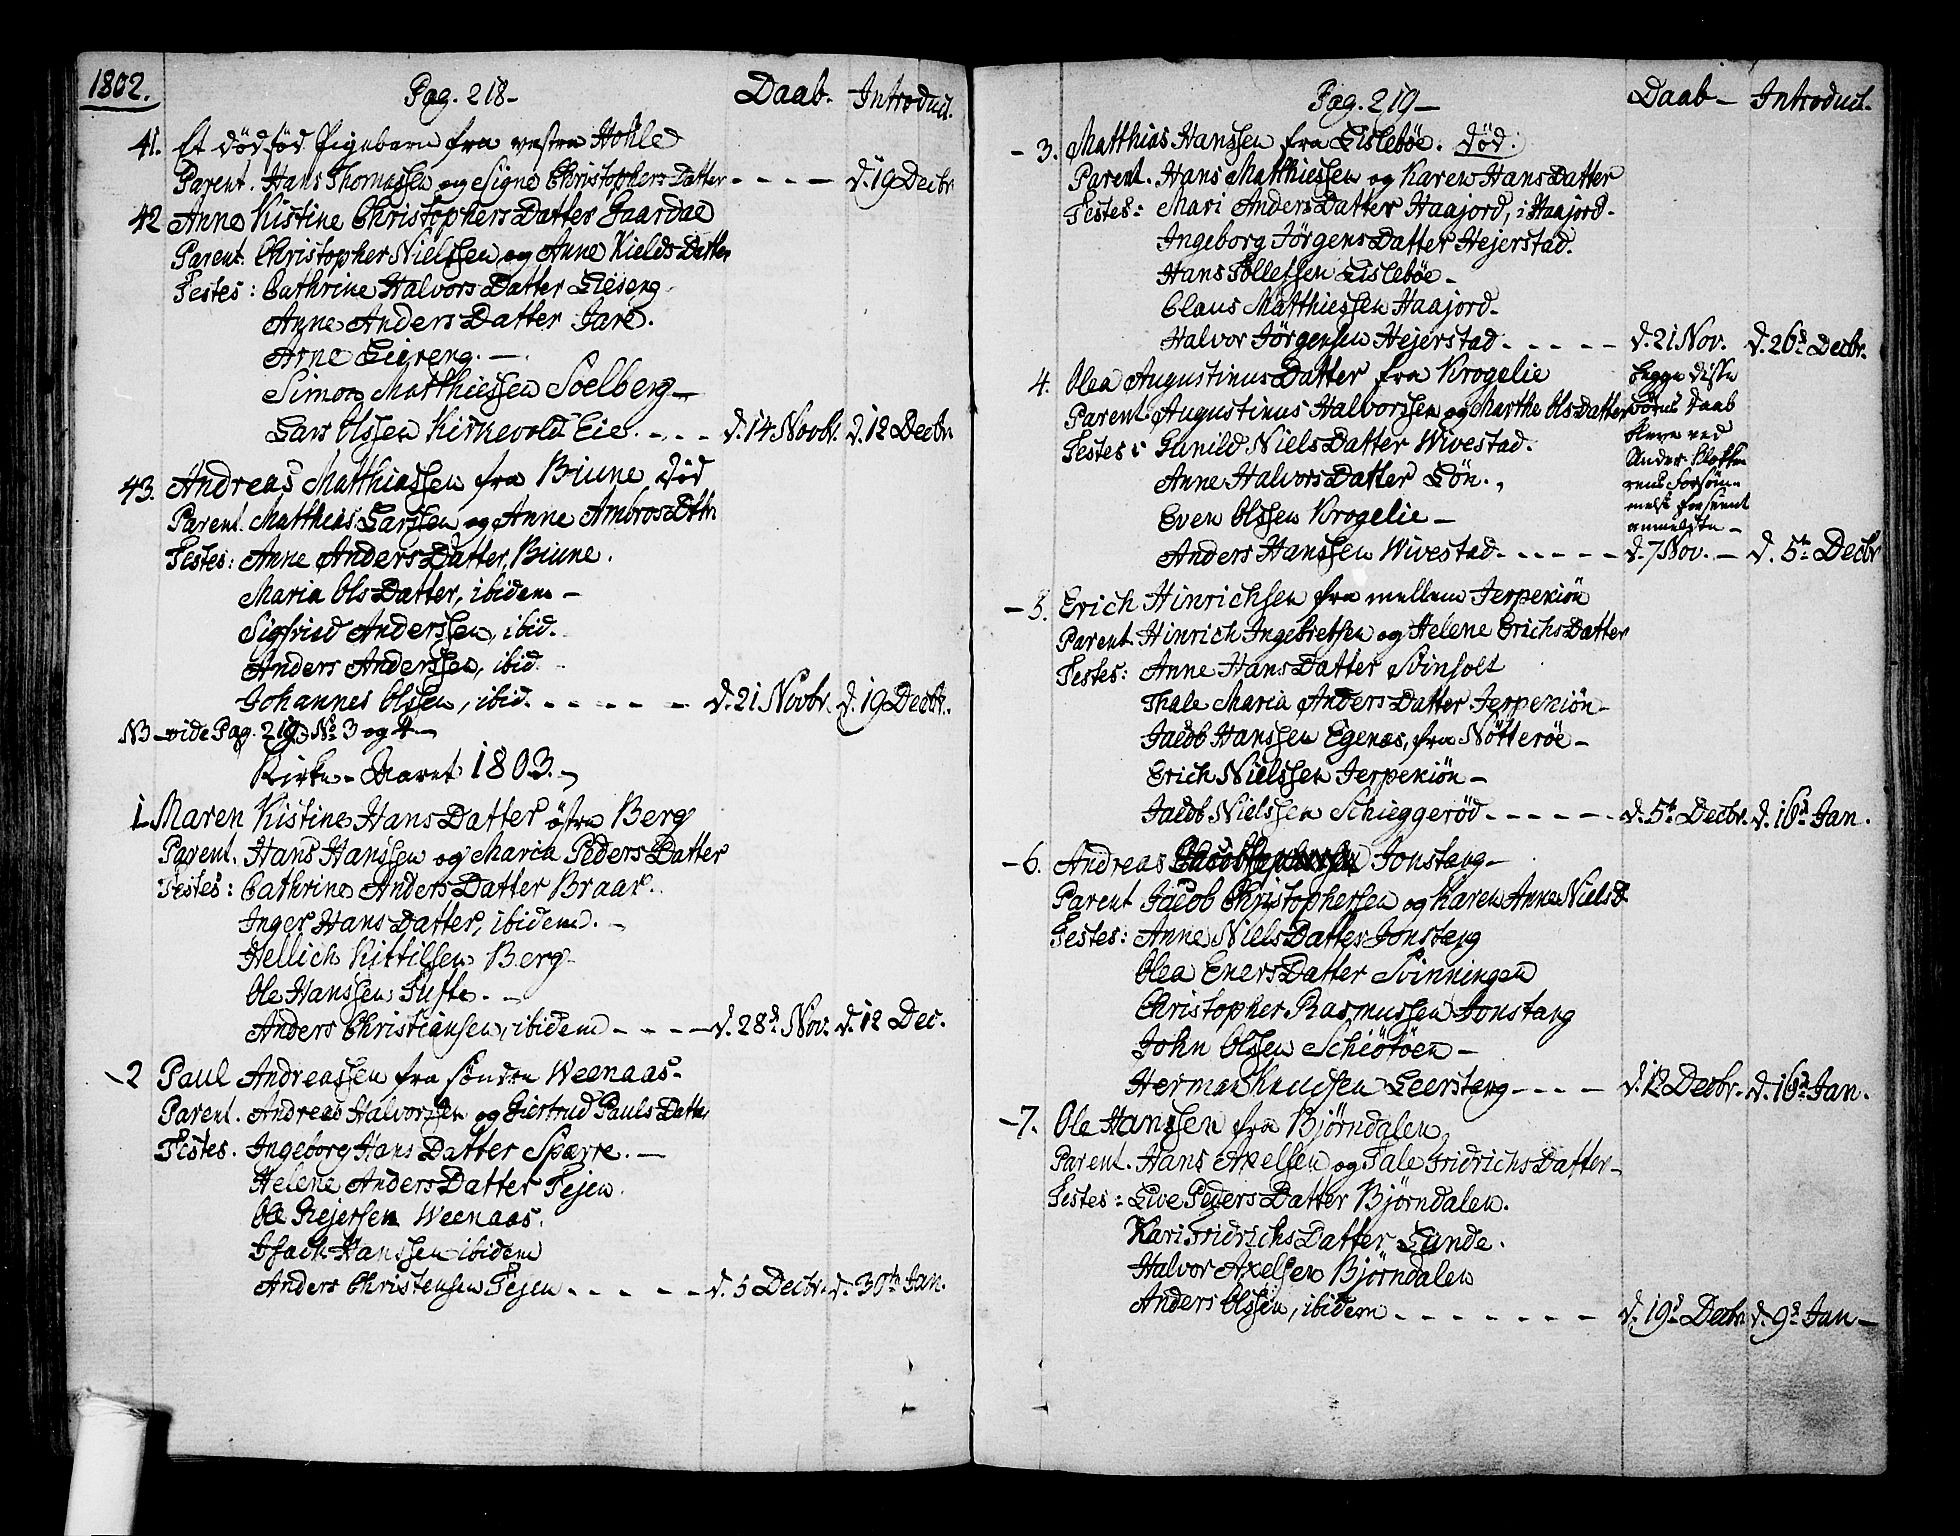 1802.
Pag. 218 -
Daab. Introduct.
41. Et dödfød Pigebarn fra vestre Hohle
Parent. Hans Thomassen og Signe Christophers Datter - - - - d. 19 Decbr
42 Anne Kistine Christophers Datter Gaardal
Parent. Christopher Nielssen og Anne Kields Datter
Testes: Cathrine Halvors Datter
Anne Anders Datter Jare.
Arne
Simon Matthiessen Solberg -
Lars Olssen Kirkevold Eie. - - - d. 14 Novbr. d. 12 Decbr.
43. Andreas Matthiassen fra Biune död
Parent. Matthias Larssen og Anne Ambros Dttr
Testes: Anne Anders Datter, Biune.
Maria Ols Datter, ibidem -
Sigfried Anderssen, ibid.
Anders Anderssen, ibid.
Johannes Olssen, ibid. - - - - - - d. 21 Novbr. d. 19 Decbr.
NB - vide Pag. 219, No 3 og 4 -
Kirke-Aaret 1803. -
1. Maren Kistine Hans Datter östre Berg
Parent. Hans Hanssen og Maria Peders Datter
Testes: Cathrine Anders Datter Braar.
Inger Hans Datter, ibidem. -
Hellich Kittilsen Berg -
Ole Hanssen Tufte. -
Anders Christiansen, ibidem - - - - d. 28d Nov. d. 12 Dec.
- 2 Paul Andreassen fra söndre Weenaas -
Parent. Andreas Halvorssen og Giertrud Pauls Datter
Testes. Ingeborg Hans Datter Spærre. -
Helene Anders Datter Fejen.
Ole Rejersen Weenaas.
Isach Hanssen ibidem
Anders Christensen Fejen - - - - - d. 5 Decbr. d. 30te Jan.
Pag. 219 -
Daab - Introduct.
- 3. Matthias Hanssen fra Lislebøe. död.
Parent. Hans Matthiessen og Karen Hans Datter
Testes: Mari Anders Datter Haajord, i Haajord -
Ingeborg Jörgens Datter Hejerstad.
Hans Tollefsen Lislebøe -
Claus Matthiessen Haajord -
Halvor Jörgensen Hejerstad - - - - - d. 21 Nov. d. 26d Decbr.
4. Olea Augustinus Datter fra Krogelie
Parent. Augustinus Halvorssen og Marthe Ols Datter
Testes: Gunild Niels Datter Wivestad.
Anne Halvors Datter Lön.,
Even Olssen Krogelie -
Anders Hanssen Wivestad - - - - - d. 7 Nov. - d. 5te Decbr
begge disse
Börns Daab
bleve ved
Ander Klokke
rens Forsöm-
melse forseent
anmeldte -
- 5. Erich Hinrichsen fra mellem Jerpekiön
Parent. Hinrich Ingebretsen og Helene Erichs Datter
Testes: Anne Hans Datter Svinholt
Thale Maria Anders Datter Jerpekiön -
Jacob Hanssen Egenæs, fra Nötteröe -
Erich Nielssen Jerpekiön -
Jacob Nielssen Schieggeröd - - - - - d. 5te Decbr. d. 16d Jan.
- 6. Andreas Jonstang -
Parent Jacob Christophersen og Karen Anne Niels D.
Testes: Anne Niels Datter Jonstang
Olea Eners Datter Svinningen
Christopher Rasmussen Jonstang
John Olssen Schiötöen -
Herman Knudsen Leerstang - - - - d. 12 Decbr. d. 16d Jan.
- 7. Ole Hanssen fra Björndalen
Parent. Hans Axelsen og Tale Fridrichs Datter -
Testes: Live Peders Datter Björndalen.
Kari Fridrichs Datter Lunde.
Halvor Axelsen Björndalen
Anders Olssen, ibidem - - - - - - - - d. 19d Decbr d. 9d Jan -